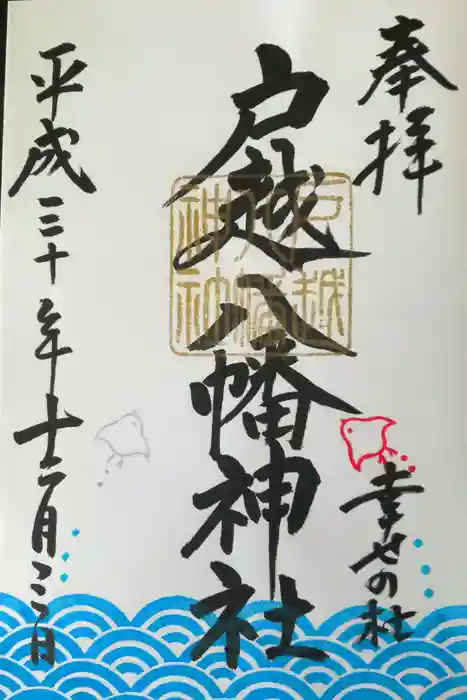 奉拝
幸せの杜
戸越八幡神社
戸越
八幡
神社
平成三十年十二月二日